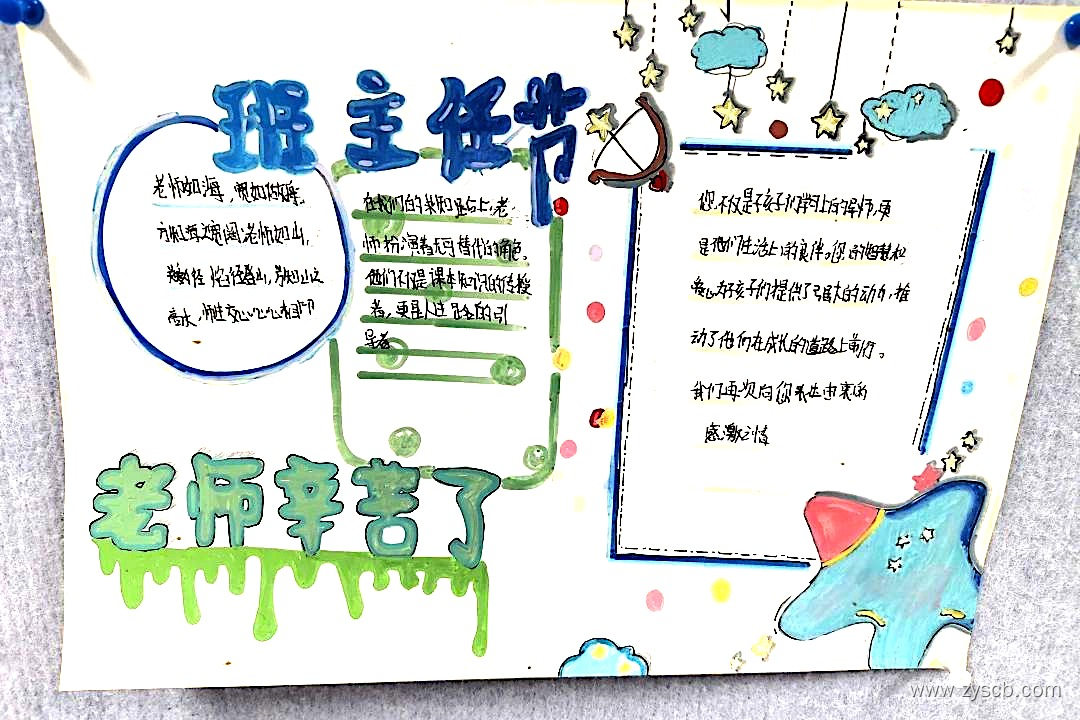 班主任节
老师如海，宽如
方知海宽阔老师如山，
登山，方知山之
高大，师生交心心心相印
在我们的求知路上，老
师扮演着无可替代的角色。
他们不仅是课本知识的传授
者，更是人生路的引
导者
您不仅是孩子们学习上的导师，更
是他们生活上的良伴。您的智慧和
爱心为孩子们提供了强大的动力，推
动了他们在成长的道路上前行。
我们再次向您表达由衷的
感激之情
老师辛苦了
www.zyscb.com